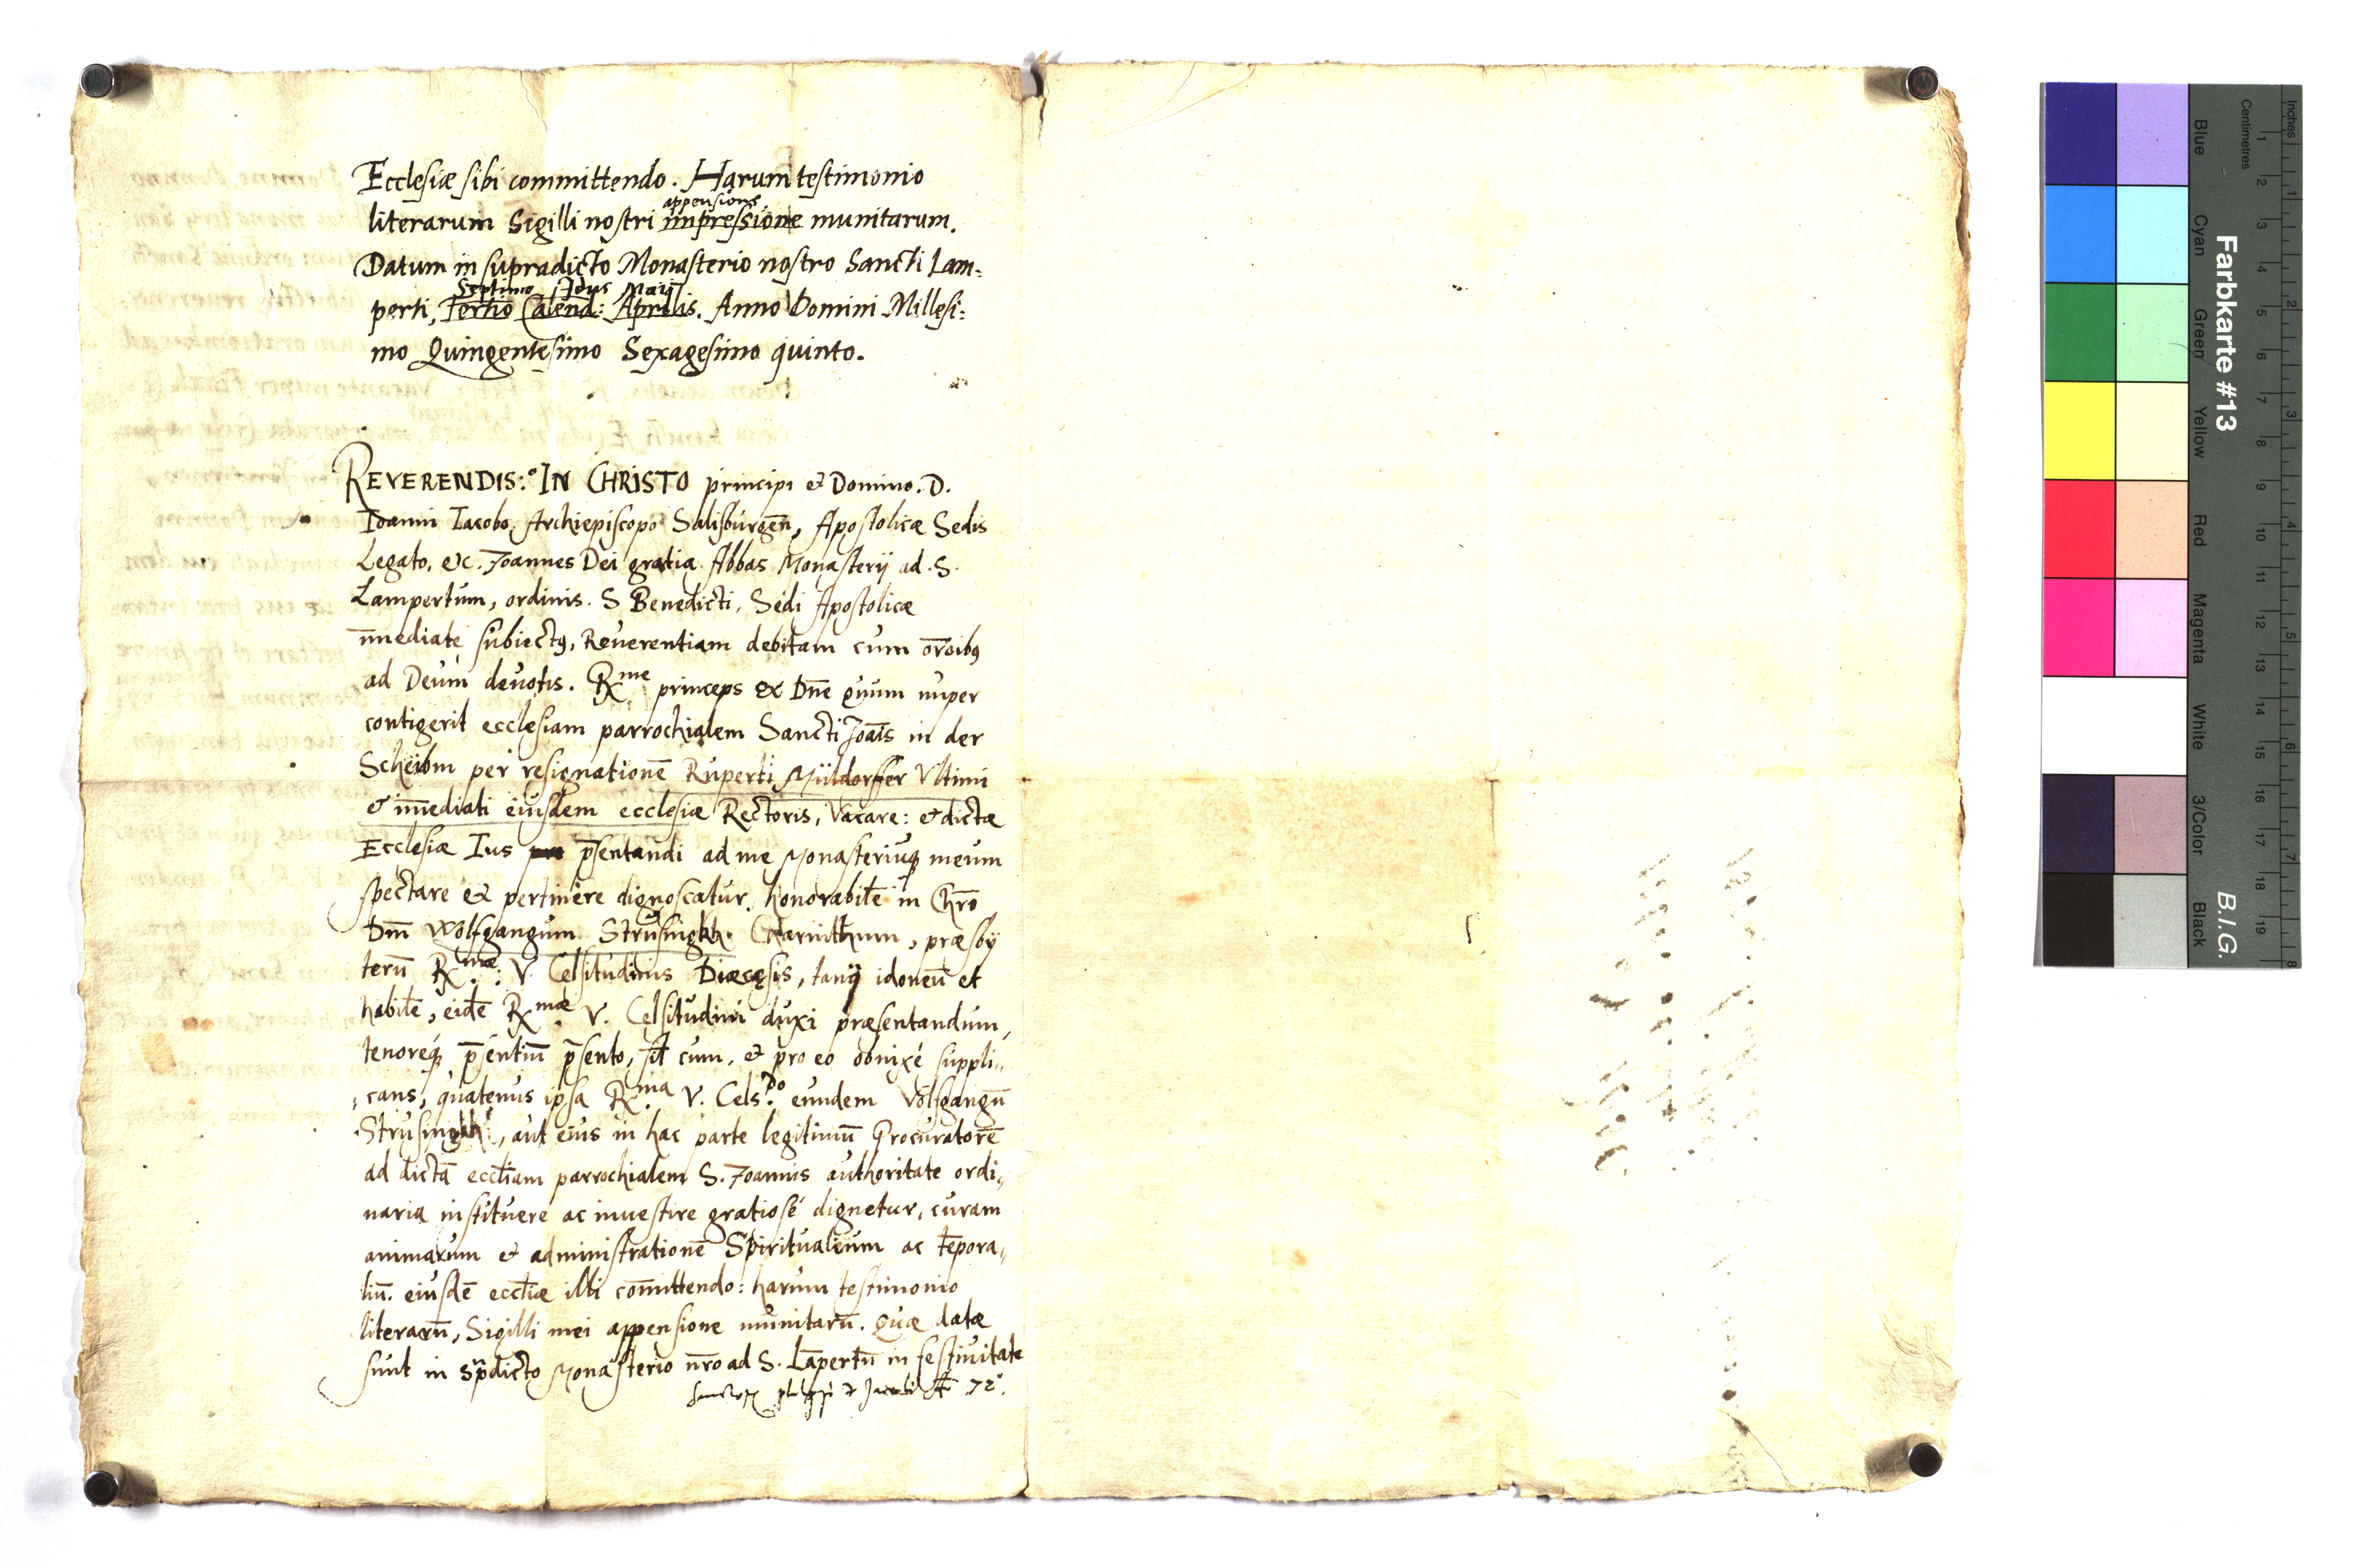 Ecclesiæ sibi committendo. Harum testimonio
appensione
literarum Sigilli nostri impressione munitarum.
Datum in supradicto Monasterio nostro Sancti Lam:
Septimo Idus Maij
perti, Tertio Calend: Aprilis. Anno Domini Millesi:
mo Quingentesimo Sexagesimo quinto.
REVERENDIS:º IN CHRISTO principi et Domino. D.
Ioanni Iacobo, Archiepiscopo Salisburgeñ, Apostolicæ Sedis
Legato, etc. Joannes Dei gratia Abbas Monasterij ad .S.
Lampertum, ordinis. S Benedicti, Sedi Apostolicæ
im̄ediatè subiectꝰ, Reuerentiam debitam cum or̄oibꝰ
ad Deum deuotis. Rme princeps et Dn̄e quum nuper
contigerit ecclesiam parrochialem Sancti Joān̄is in der
Scheibm per resignationē Ruperti Müldorffer Vltimi
et im̄ediati eiusdem ecclesiæ Rectoris, Vacare: et dictæ
Ecclesiæ Ius p̄sentandi ad me Monasteriuq́ meum
spectare et pertinere dignoscatur, honorabilē in Chr̄o
Dn̄m Wolfgangum Strusingkh Charinthum, præsby
terū Rmæ: V. Celsitudinis Diæcesis, tanq̃ idoneū et
habilē, eidē Rmæ V. Celsitudini duxi præsentandum,
tenoreq́ p̄sentiū p̄sento, cum, et pro eo obnixè suppli,,
,cans, quatenus ipsa Rma V. Cels:do eundem Volfgangū
Strusingkh, aut eius in hac parte legitimū Procuratorē
ad dictā eccl̄iam parrochialem S. Joannis authoritate ordi,,
naria instituere ac inuestire gratiosè dignetur, curam
animarum et administrationē Spiritualium ac tēpora,,
liū. eiusdē eccl̄iæ illi com̄ittendo: harum testimonio
literarū, Sigilli mei appensione munitarū. Quæ datæ
sunt in sup̄dicto Monasterio nr̄o ad S. Lāpertū in festiuitate
Sanctorum philippi et Jacobi 72º.
Farbkarte #13
B.I.G.
Centimetres
Inches
Blue
Cyan
Green
Yellow
Red
Magenta
White
3/Color
Black
1 2 3 4 5 6 7 8 9 10 11 12 13 14 15 16 17 18 19
1 2 3 4 5 6 7 8